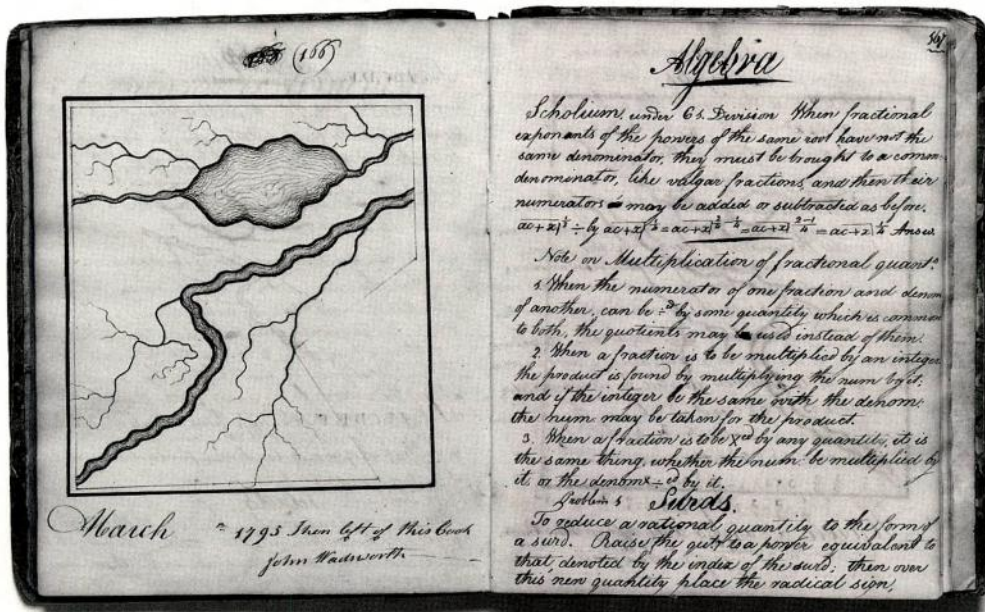 (166)
March 1795 Then left of this Book
John Wadsworth
167
Algebra
Scholium, under 6 s. Division When fractional
exponants of the powers of the same root have not the
same denominator, they must be brought to a comm
denominator, like valgar fractions, and then their
numerators may be added or subtracted as before.
Answ
Note on Multiplication of fractional quant.s
1. When the numerator of one fraction and denom
of another, can be ÷d by some quantity which is common
to both, the quotients may be used instead of them.
2. When a fraction is to be multiplied by an integer
the product is found by multiplying the num by it;
and if the integer be the same with the denom:
the num may be taken for the product.
3. When a fraction is to be Xed by any quantity, it is
the same thing, whether the num: be multiplied by
it, or the denom ÷ed by it.
Problem 1 Surds.
To reduce a rational quantity to the form of
a surd. Raise the qu to a power equivalent to
that denoted by the index of the surd; then over
this new quantity place the radical sign,